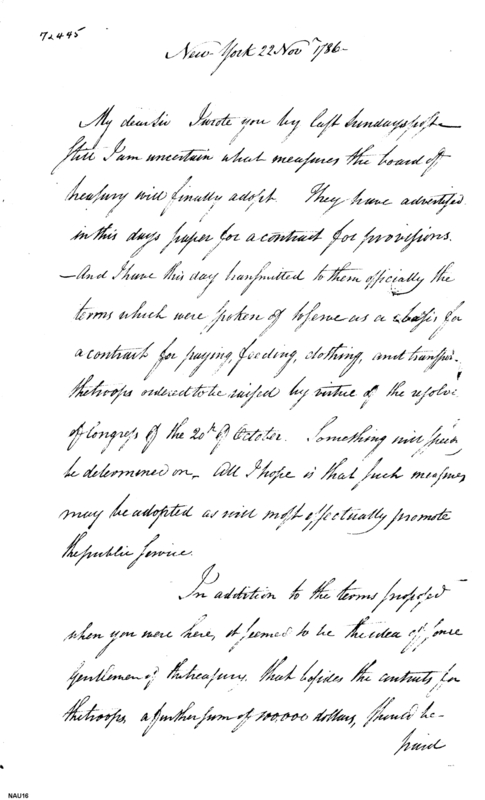 72445
New York 22 Nov.r 1786-
My dear Sir I wrote you by last Sundays post-
Still I am uncertain what measures the board of
treasury will finally adopt They have advertised
in this days paper for a contract for provisions.
-And I have this day transmitted to them officially the
terms which were spoken of to serve as a basis for
a contract for paying, feeding, clothing, and transpor.
the troops ordered to be raised by virtue of the resolve
of Congress of the 20th of October. Something will soon
be determined on- All I hope is that such measures
may be adopted as will most effectually promote
the public service.
In addition to the terms proposed
when you were here, it seemed to be the idea of some
Gentlemen of the treasury, that besides the contracts for
the troops a further sum of 100,000 dollars, should be-
paid
NAU16